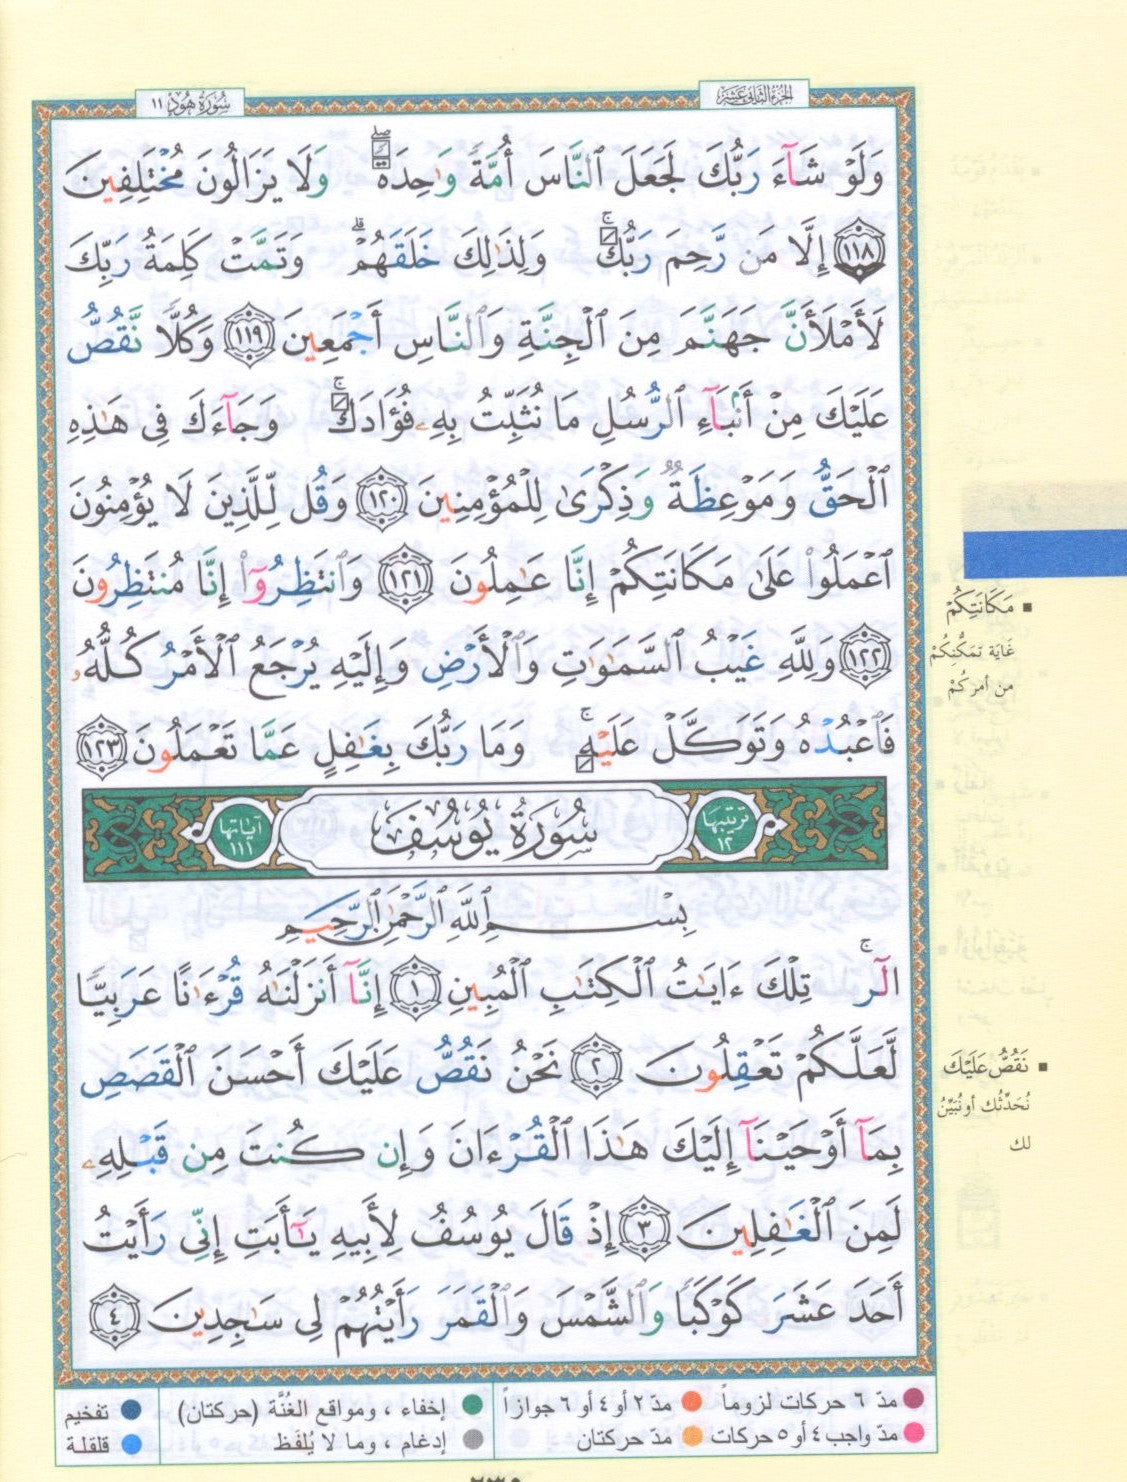 الجزء الثاني عشر
سُورَةُ هُود ١١
وَلَوْ شَآءَ رَبُّكَ لَجَعَلَ ٱلنَّاسَ أُمَّةً وَٰحِدَةً ۖ وَلَا يَزَالُونَ مُخْتَلِفِينَ
﴿١١٨﴾ إِلَّا مَن رَّحِمَ رَبُّكَ ۚ وَلِذَٰلِكَ خَلَقَهُمْ ۗ وَتَمَّتْ كَلِمَةُ رَبِّكَ
لَأَمْلَأَنَّ جَهَنَّمَ مِنَ ٱلْجِنَّةِ وَٱلنَّاسِ أَجْمَعِينَ ﴿١١٩﴾ وَكُلًّا نَّقُصُّ
عَلَيْكَ مِنْ أَنۢبَآءِ ٱلرُّسُلِ مَا نُثَبِّتُ بِهِۦ فُؤَادَكَ ۚ وَجَآءَكَ فِى هَٰذِهِ
ٱلْحَقُّ وَمَوْعِظَةٌ وَذِكْرَىٰ لِلْمُؤْمِنِينَ ﴿١٢٠﴾ وَقُل لِّلَّذِينَ لَا يُؤْمِنُونَ
ٱعْمَلُوا۟ عَلَىٰ مَكَانَتِكُمْ إِنَّا عَٰمِلُونَ ﴿١٢١﴾ وَٱنتَظِرُوٓا۟ إِنَّا مُنتَظِرُونَ
﴿١٢٢﴾ وَلِلَّهِ غَيْبُ ٱلسَّمَٰوَٰتِ وَٱلْأَرْضِ وَإِلَيْهِ يُرْجَعُ ٱلْأَمْرُ كُلُّهُۥ
فَٱعْبُدْهُ وَتَوَكَّلْ عَلَيْهِ ۚ وَمَا رَبُّكَ بِغَٰفِلٍ عَمَّا تَعْمَلُونَ ﴿١٢٣﴾
ترتيبها ١٢ سُورَةُ يُوسُفَ آياتها ١١١
بِسْمِ ٱللَّهِ ٱلرَّحْمَٰنِ ٱلرَّحِيمِ
الٓر ۚ تِلْكَ ءَايَٰتُ ٱلْكِتَٰبِ ٱلْمُبِينِ ﴿١﴾ إِنَّآ أَنزَلْنَٰهُ قُرْءَٰنًا عَرَبِيًّا
لَّعَلَّكُمْ تَعْقِلُونَ ﴿٢﴾ نَحْنُ نَقُصُّ عَلَيْكَ أَحْسَنَ ٱلْقَصَصِ
بِمَآ أَوْحَيْنَآ إِلَيْكَ هَٰذَا ٱلْقُرْءَانَ وَإِن كُنتَ مِن قَبْلِهِۦ
لَمِنَ ٱلْغَٰفِلِينَ ﴿٣﴾ إِذْ قَالَ يُوسُفُ لِأَبِيهِ يَٰٓأَبَتِ إِنِّى رَأَيْتُ
أَحَدَ عَشَرَ كَوْكَبًا وَٱلشَّمْسَ وَٱلْقَمَرَ رَأَيْتُهُمْ لِى سَٰجِدِينَ ﴿٤﴾
▪ مَكَانَتِكُمْ
غَايَة تمَكُّنكُمْ
من أمرِكُمْ
▪ نَقُصُّ عَلَيْكَ
نُحَدِّثُك أو نُبَيِّنُ
لك
● مدّ ٦ حركات لزوماً ● مدّ ٢ أو ٤ أو ٦ جوازاً ● إخفاء ، ومواقع الغُنَّة (حركتان) ● تفخيم
● مدّ واجب ٤ أو ٥ حركات ● مدّ حركتان ● إدغام ، وما لا يُلفَظ ● قلقلة